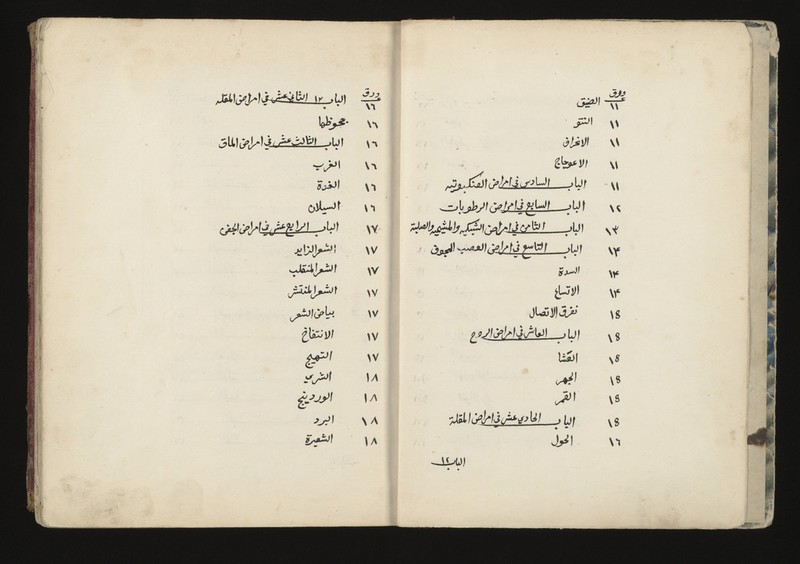 ورق
١١ الضيق
١١ النتو
١١ الانخراق
١١ الاعوجاج
١١ الباب السادس في امراض العنكبوتيه
١٢ الباب السابع في امراض الرطوبات
١٣ الباب الثامن في امراض الشبكيه والمشيميه والصلبة
١٤ الباب التاسع في امراض العصب المجوف
١٤ السدة
١٤ الاتساع
١٤ تفرق الاتصال
١٤ الباب العاشر في امراض الروح
١٤ العشا
١٤ الجهر
١٤ القمر
١٤ الباب الحادي عشر في امراض المقلة
١٦ الحول
الباب ١٢
ورق
١٦ الباب ١٢ الثاني عشر في امراض المقله
١٦ جحوظها
١٦ الباب الثالث عشر في امراض الماق
١٦ الغرب
١٦ الغدة
١٦ السيلان
١٧ الباب الرابع عشر في امراض الجفن
١٧ الشعر الزايد
١٧ الشعر المنقلب
١٧ الشعر المنتشر
١٧ بياض الشعر
١٧ الانتفاخ
١٧ التهيج
١٨ الشري
١٨ الوردينج
١٨ البرد
١٨ الشعيرة